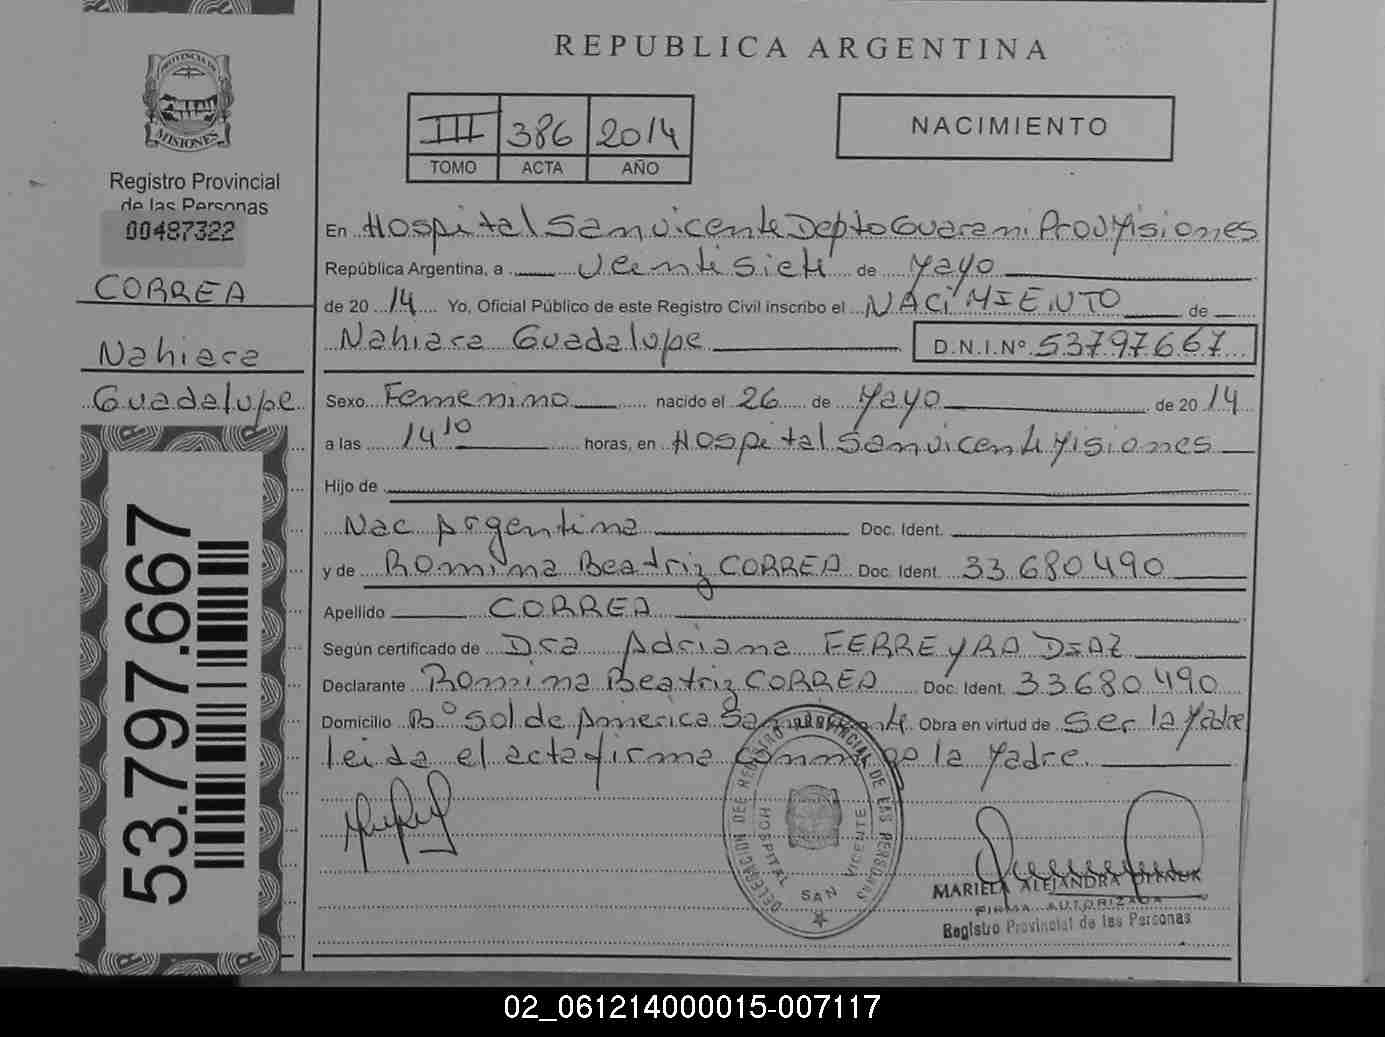 REPUBLICA ARGENTINA
PROVINCIA DE
MISIONES
Registro Provincial
de las Personas
00487322
CORREA
Nahiara
Guadalupe
53.797.667
III 386 2014
TOMO ACTA AÑO
NACIMIENTO
En Hospital San vicente Depto Guarani Prov Misiones
República Argentina, a Veintisiete de Mayo
de 20 14 Yo, Oficial Público de este Registro Civil inscribo el NACIMIENTO de
Nahiara Guadalupe D.N.I.Nº 53797667
Sexo Femenino nacido el 26 de Mayo de 20 14
a las 14 10 horas, en Hospital San vicente Misiones
Hijo de
Nac Argentina Doc. Ident.
y de Romina Beatriz CORREA Doc. Ident. 33.680.490
Apellido CORREA
Según certificado de Dra Adriana FERREYRA DIAZ
Declarante Romina Beatriz CORREA Doc. Ident. 33680490
Domicilio Bº Sol de America San vicente Obra en virtud de Ser la Madre
leida el acta firma conmigo la Madre.
DELEGACION DEL REGISTRO PROVINCIAL DE LAS PERSONAS
HOSPITAL SAN VICENTE
MARIELA ALEJANDRA
FIRMA AUTORIZADA
Registro Provincial de las Personas
02_061214000015-007117